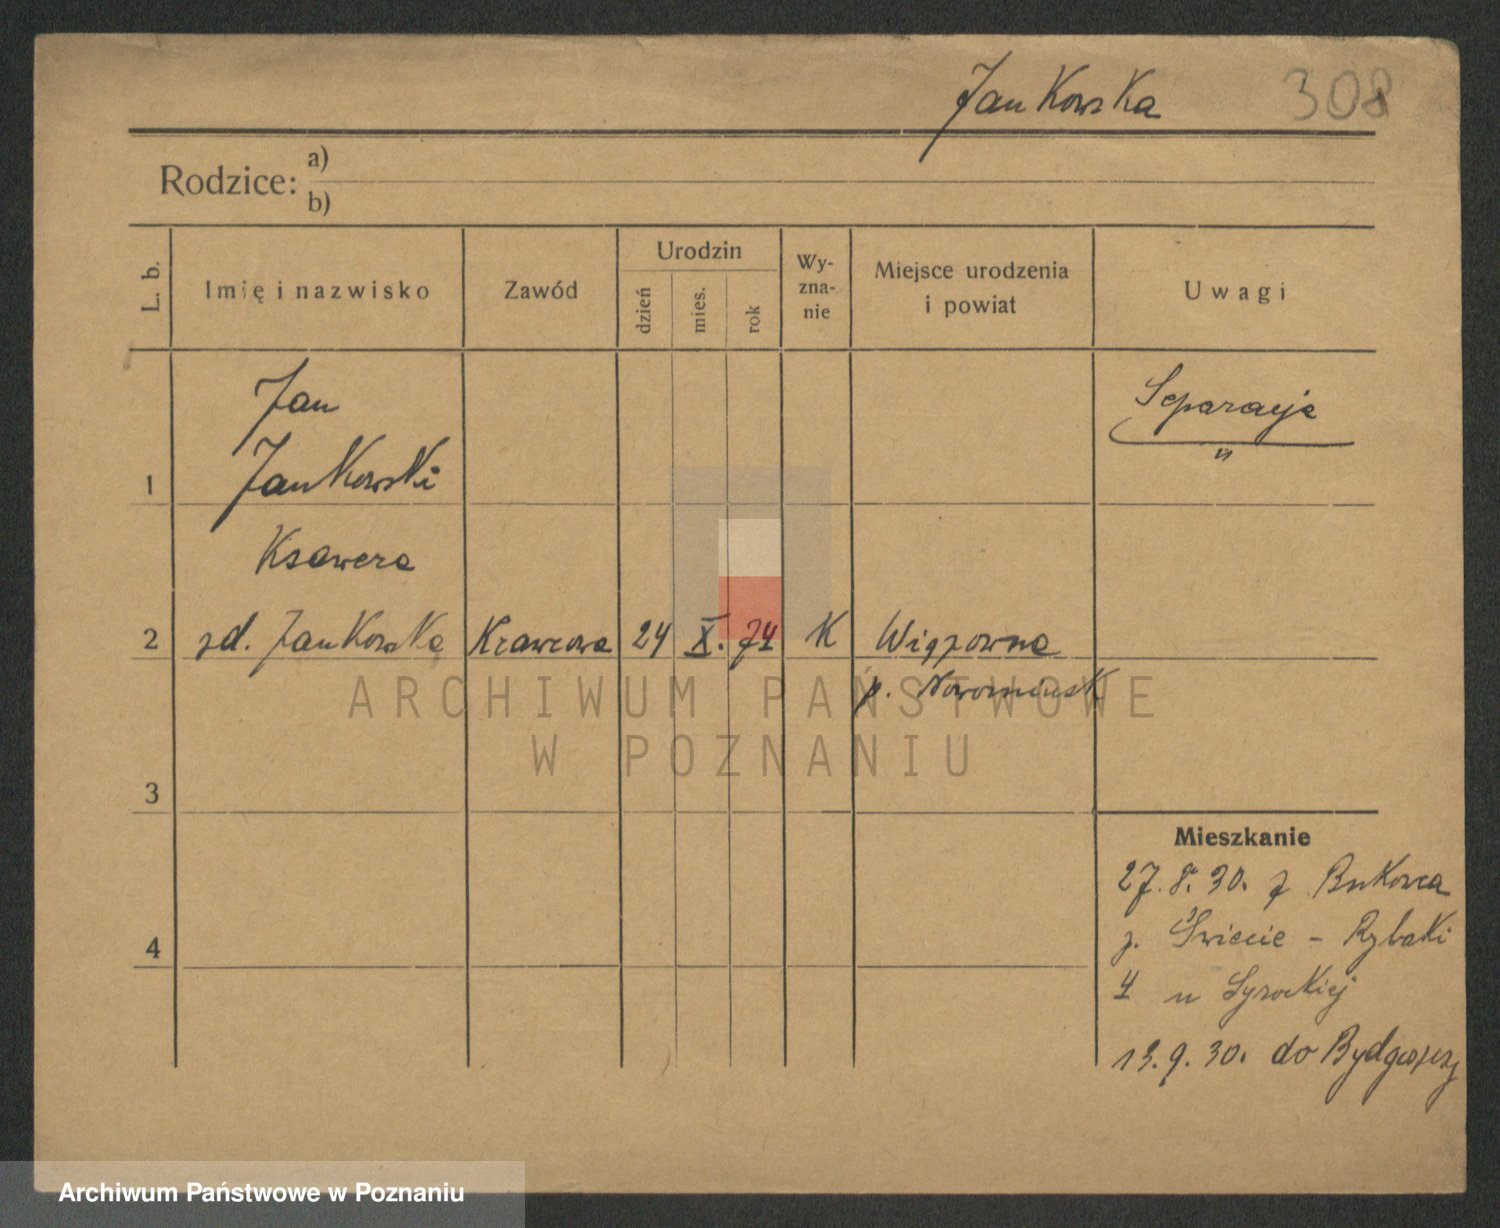 Jankowska 308
Rodzice: a)
b)
L. b.
Imię i nazwisko
Zawód
Urodzin
dzień
mies.
rok
Wy-
zna-
nie
Miejsce urodzenia
i powiat
Uwagi
Jan
Separacja
1 Jankowski
"
Ksawera
2 zd. Jankowska Krawcowa 24 X. 74 K Wiązowna
p. Nowomińsk
ARCHIWUM PAŃSTWOWE
W POZNANIU
3
Mieszkanie
27.8.30. z Bukowca
p. Świecie - Rybaki
4
4 u Syrockiej
13.9.30. do Bydgoszczy
Archiwum Państwowe w Poznaniu